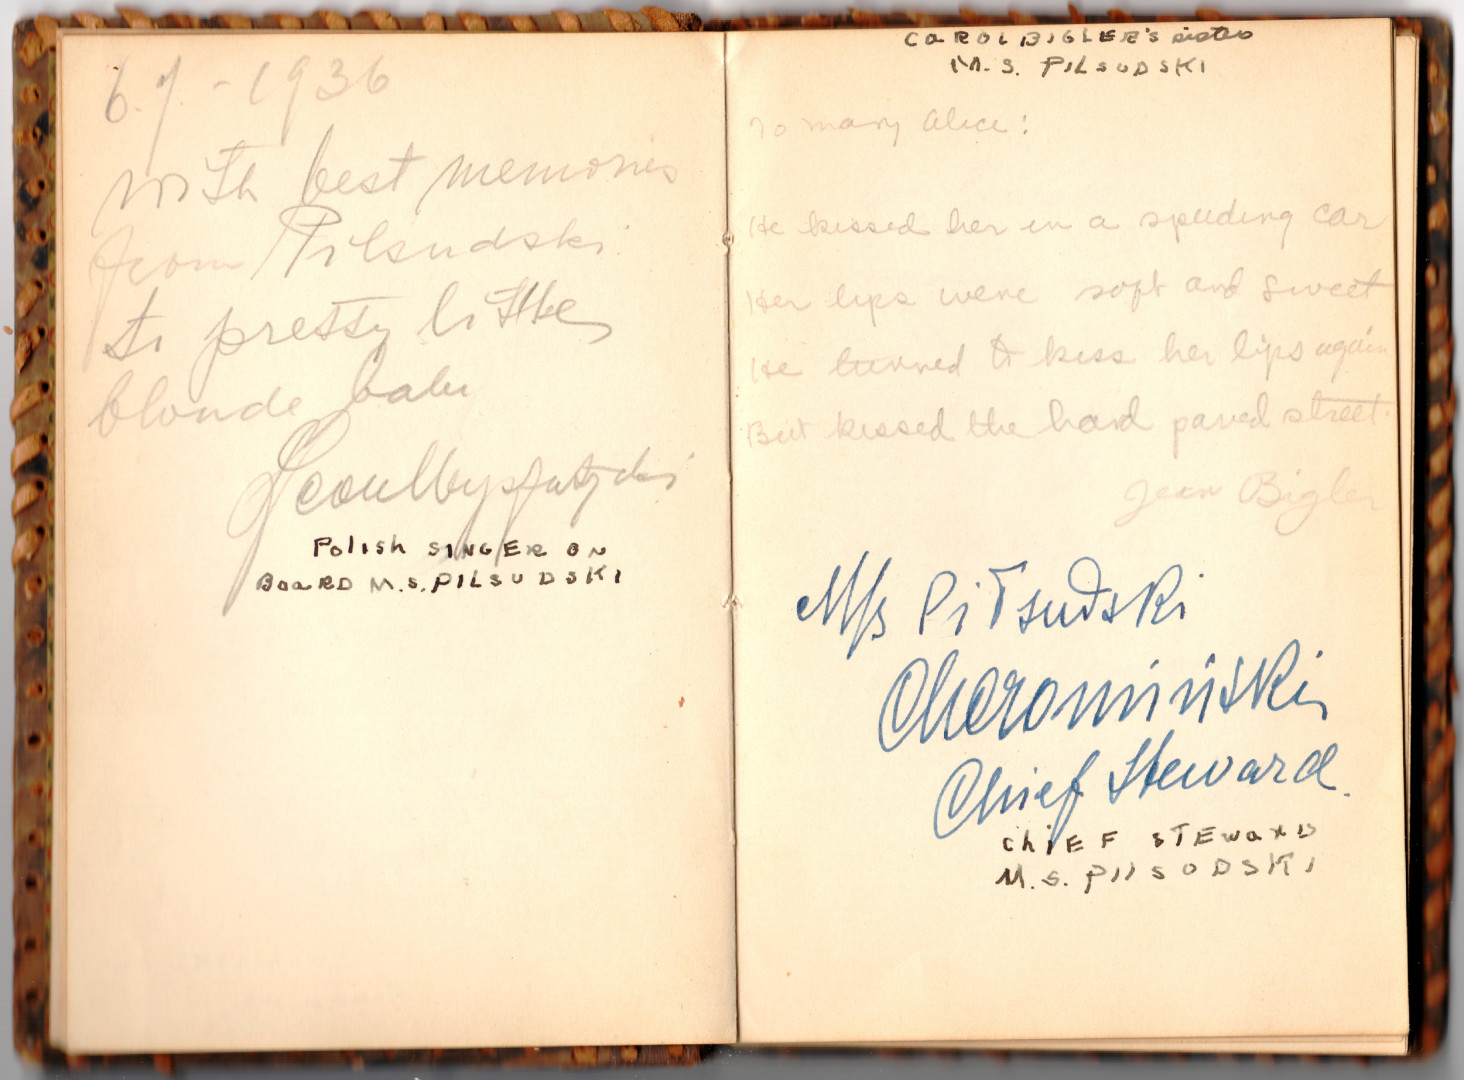 6.7. - 1936
with best memories
from Pilsudski
to pretty little
blonde babe
Polish SINGER ON
BOARD M.S. PILSUDSKI
CAROL BIGLER'S sister
M. S. PILSUDSKI
To Mary Alice:
He kissed her in a speeding car
Her lips were soft and sweet
He turned to kiss her lips again
But kissed the hard paved street.
Jean Bigler
M/s Piłsudski
Chief Steward.
ChIEF STEWARD
M.S. PIlSUDSKI